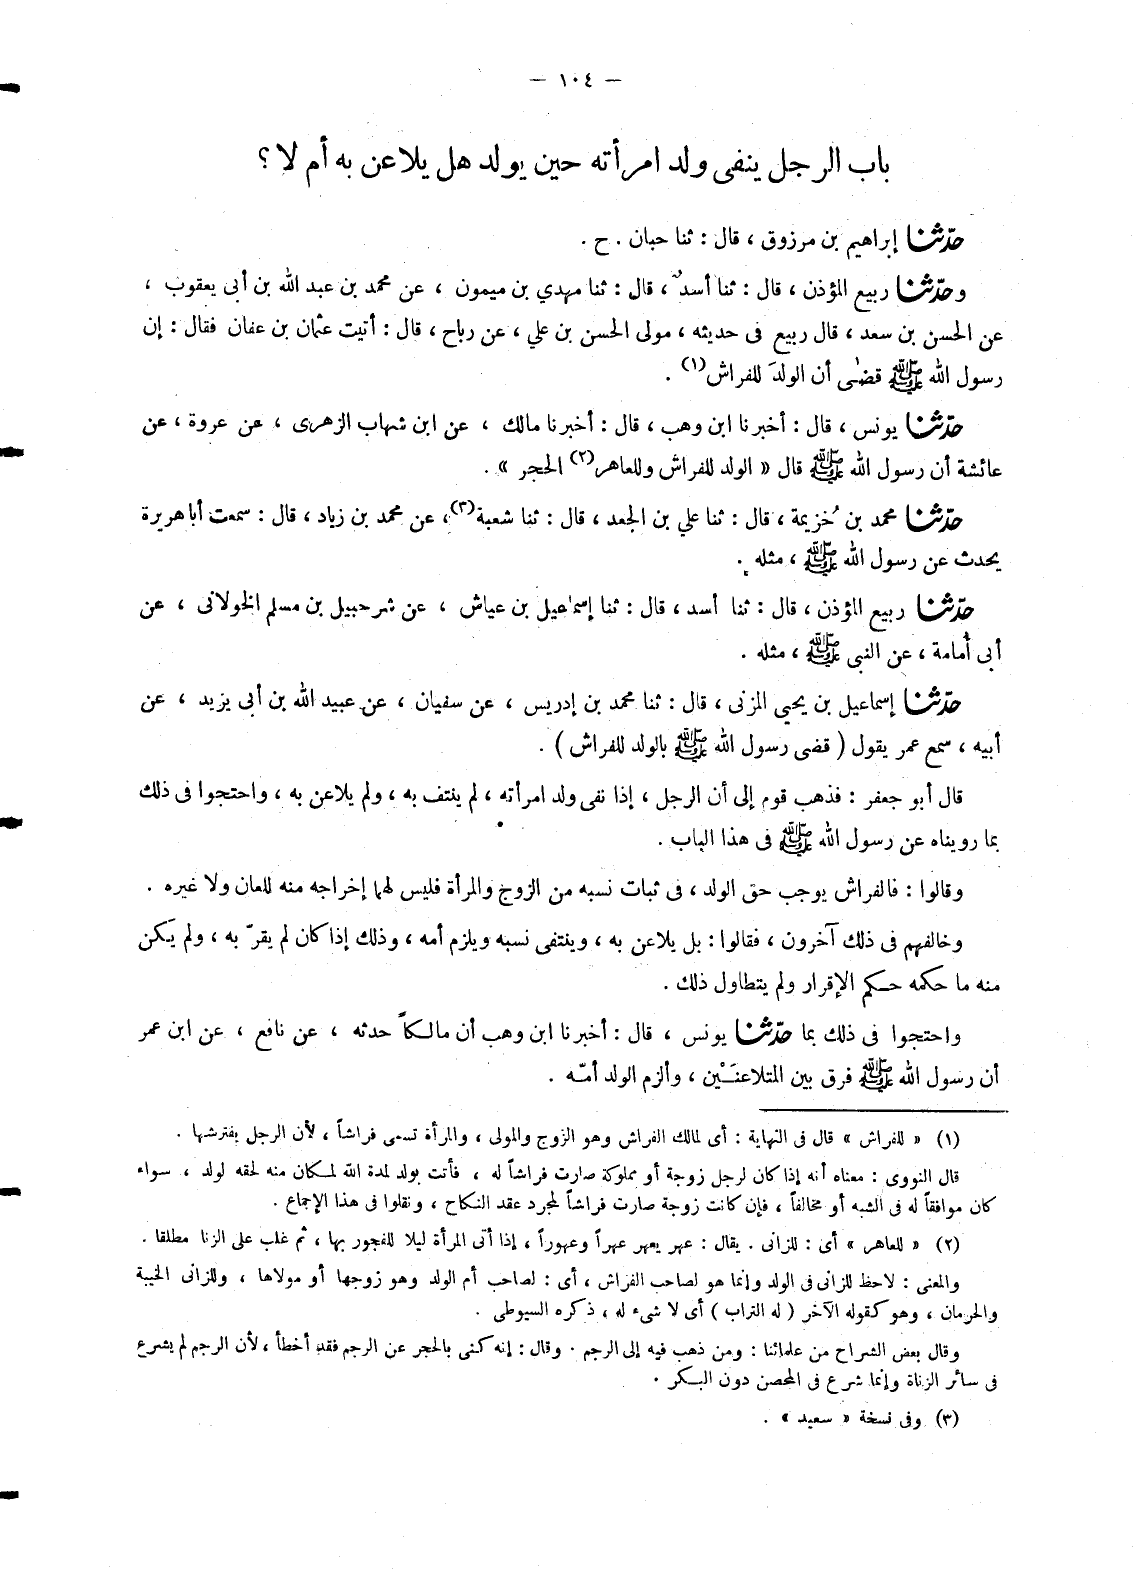 — ١٠٤ —
باب الرجل ينفى ولد امرأته حين يولد هل يلاعن به أم لا ؟
حدّثنا إبراهيم بن مرزوق ، قال : ثنا حبان . ح .
وحدّثنا ربيع المؤذن ، قال : ثنا أسدٌ ، قال : ثنا مهدي بن ميمون ، عن محمد بن عبد الله بن أبى يعقوب ،
عن الحسن بن سعد ، قال ربيع فى حديثه ، مولى الحسن بن علي ، عن رباح ، قال : أتيت عثمان بن عفان فقال : إن
رسول الله ﷺ قضى أن الولدَ للفراش(١) .
حدّثنا يونس ، قال : أخبرنا ابن وهب ، قال : أخبرنا مالك ، عن ابن شهاب الزهرى ، عن عروة ، عن
عائشة أن رسول الله ﷺ قال « الولد للفراش وللعاهر(٢) الحجر » .
حدّثنا محمد بن خُزيمة ، قال : ثنا علي بن الجعد ، قال : ثنا شعبة(٣) ، عن محمد بن زياد ، قال : سمعت أبا هريرة
يحدث عن رسول الله ﷺ ، مثله .
حدّثنا ربيع المؤذن ، قال : ثنا أسد ، قال : ثنا إسماعيل بن عياش ، عن شرحبيل بن مسلم الخولانى ، عن
أبى أُمامة ، عن النبى ﷺ ، مثله .
حدّثنا إسماعيل بن يحيى المزنى ، قال : ثنا محمد بن إدريس ، عن سفيان ، عن عبيد الله بن أبى يزيد ، عن
أبيه ، سمع عمر يقول ( قضى رسول الله ﷺ بالولد للفراش ) .
قال أبو جعفر : فذهب قوم إلى أن الرجل ، إذا نفى ولد امرأته ، لم ينتف به ، ولم يلاعن به ، واحتجوا فى ذلك
بما رويناه عن رسول الله ﷺ فى هذا الباب .
وقالوا : فالفراش يوجب حق الولد ، فى ثبات نسبه من الزوج والمرأة فليس لهما إخراجه منه للعان ولا غيره .
وخالفهم فى ذلك آخرون ، فقالوا : بل يلاعن به ، وينتفى نسبه ويلزم أمه ، وذلك إذا كان لم يقرّ به ، ولم يَكن
منه ما حكمه حكم الإقرار ولم يتطاول ذلك .
واحتجوا فى ذلك بما حدّثنا يونس ، قال : أخبرنا ابن وهب أن مالكاً حدثه ، عن نافع ، عن ابن عمر
أن رسول الله ﷺ فرق بين المتلاعنَـيْن ، وألزم الولد أمّه .
(١) « للفراش » قال فى النهاية : أى لمالك الفراش وهو الزوج والمولى ، والمرأة تسمى فراشاً ، لأن الرجل يفترشها .
قال النووى : معناه أنه إذا كان لرجل زوجة أو مملوكة صارت فراشاً له ، فأتت بولد لمدة الله لمكان منه لحقه لولد ، سواء
كان موافقاً له فى الشبه أو مخالفاً ، فإن كانت زوجة صارت فراشاً لمجرد عقد النكاح ، ونقلوا فى هذا الإجماع .
(٢) « للعاهر » أى : للزانى . يقال : عهر يعهر عهراً وعهوراً ، إذا أتى المرأة ليلا للفجور بها ، ثم غلب على الزنا مطلقا .
والمعنى : لاحظ للزانى فى الولد وإنما هو لصاحب الفراش ، أى : لصاحب أم الولد وهو زوجها أو مولاها ، وللزانى الخيبة
والحرمان ، وهو كقوله الآخر ( له التراب ) أى لا شىء له ، ذكره السيوطى .
وقال بعض الشراح من علمائنا : ومن ذهب فيه إلى الرجم . وقال : إنه كنى بالحجر عن الرجم فقد أخطأ ، لأن الرجم لم يشرع
فى سائر الزناة وإنما شرع فى المحصن دون البكر .
(٣) وفى نسخة « سعيد » .